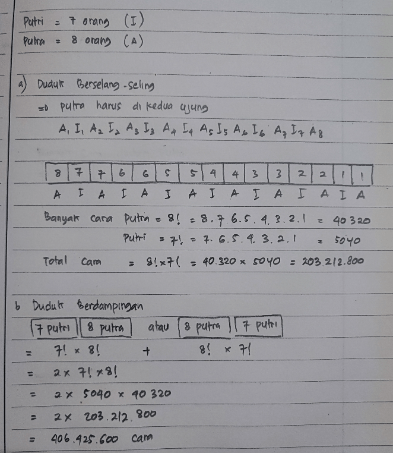 Putri = 7 orang (I)
Putra = 8 orang (A)
a) Duduk Berselang-seling
⇒ putra harus di kedua ujung
A₁ I₁ A₂ I₂ A₃ I₃ A₄ I₄ A₅ I₅ A₆ I₆ A₇ I₇ A₈
8 7 7 6 6 5 5 4 4 3 3 2 2 1 1
A I A I A I A I A I A I A I A
Banyak cara putra = 8! = 8.7.6.5.4.3.2.1 = 40320
Putri = 7! = 7.6.5.4.3.2.1 = 5040
Total cara = 8! x 7! = 40.320 x 5040 = 203.212.800
b Duduk Berdampingan
7 putri 8 putra atau 8 putra 7 putri
= 7! x 8! + 8! x 7!
= 2 x 7! x 8!
= 2 x 5040 x 40 320
= 2 x 203.212.800
= 406.425.600 cara